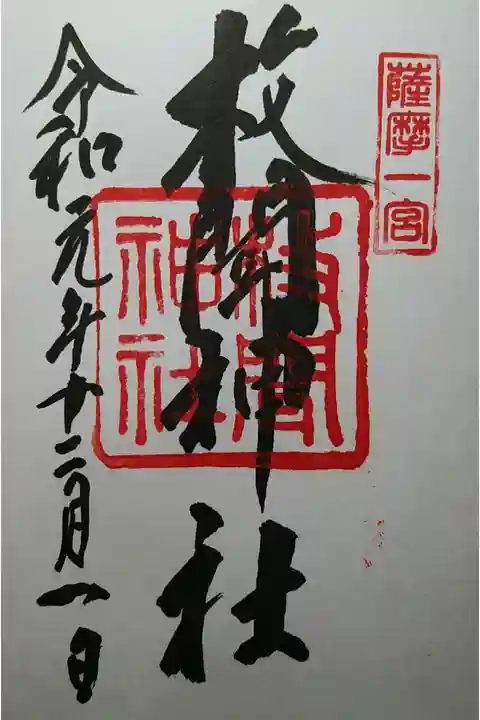 薩摩一宮
枚聞神社
枚聞神社
令和元年十二月一日